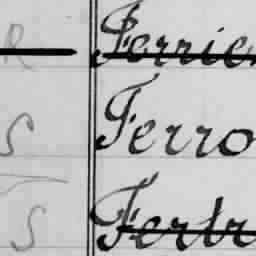 R Ferrie
S Ferro
S Fertr